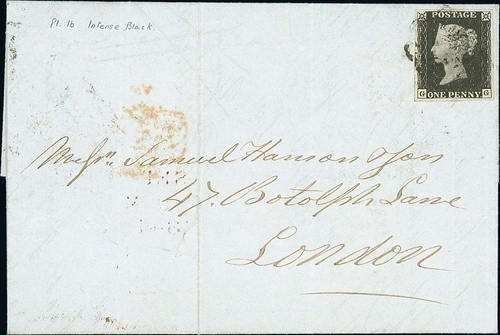 Pl. 1b Intense Black.
POSTAGE
G ONE PENNY G
Messrs. Samuel Hanson & Son
47. Botolph Lane
London